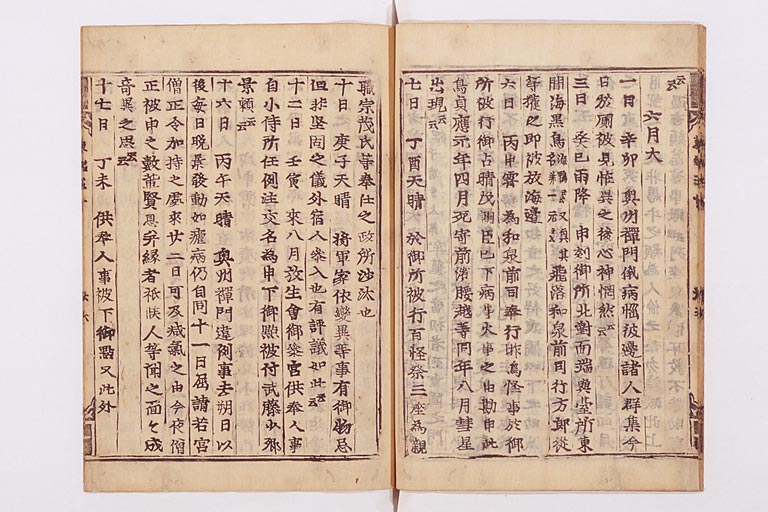 云云
六月大
一日 辛卯 奥州禪門俄病腦被邊諸人群集今
日於廁被見恠異之後心神惘然云云
三日 癸巳 雨降 申刻御所北對西端與臺所東
間海黒鳥 飛落和泉前司行方郎従
等獲之即被放海邊
六日 丙申 霽 為和泉前司奉行昨鳥怪事於御
所被行御占晴茂朝臣已下病事火事之由勘申此
鳥貞應元年四月死寄前濱腰越等同年八月彗星
出現云云
七日 丁酉 天晴 於御所被行百怪祭三座為親
職宗茂氏等奉仕之政所沙汰也
十日 庚子 天晴 將軍家依變異等事有御物忌
但非堅固之儀外宿人參入也有評議如此云云
十二日 壬寅 來八月放生會御參宮供奉人事
自小侍所任例注交名為申下御點被付武藤少卿
景頼云云
十六日 丙午 天晴 奥州禪門違例事去朔日以
後毎日晩景發動如瘧病仍自同十一日屈請若宮
僧正令加持之處來廿二日可及減氣之由今夜僧
正被申之數輩賢息并縁者祇候人等聞之面々成
奇異之思云云
十七日 丁未 供奉人事被下御點又此外